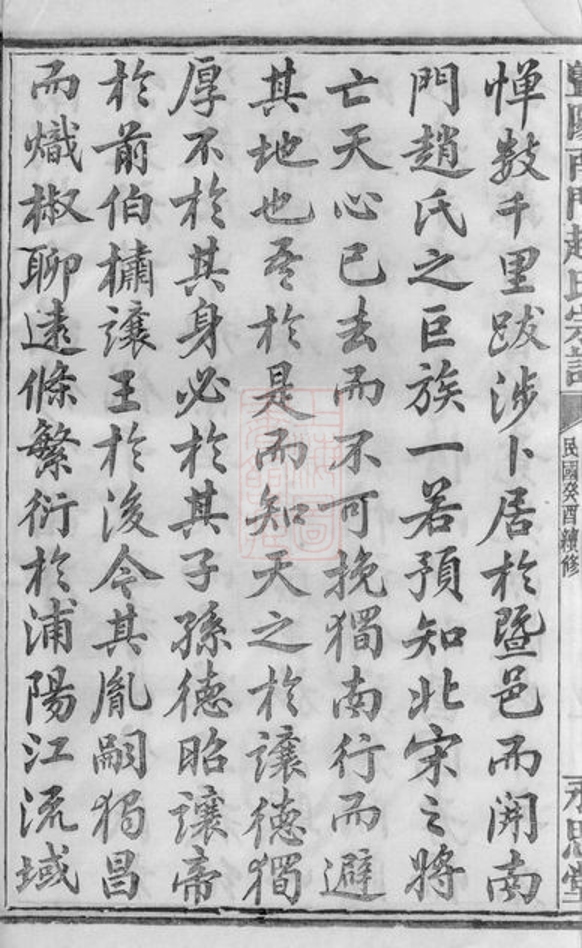 暨陽南門趙氏宗譜
民國癸酉續修
永思堂
憚數千里跋涉卜居於暨邑而開南
門趙氏之巨族一若預知北宋之將
亡天心已去而不可挽獨南行而避
其地也吾於是而知天之於讓德獨
厚不於其身必於其子孫德昭讓帝
於前伯櫹讓王於後令其胤嗣獨昌
而熾椒聊遠條繁衍於浦陽江流域